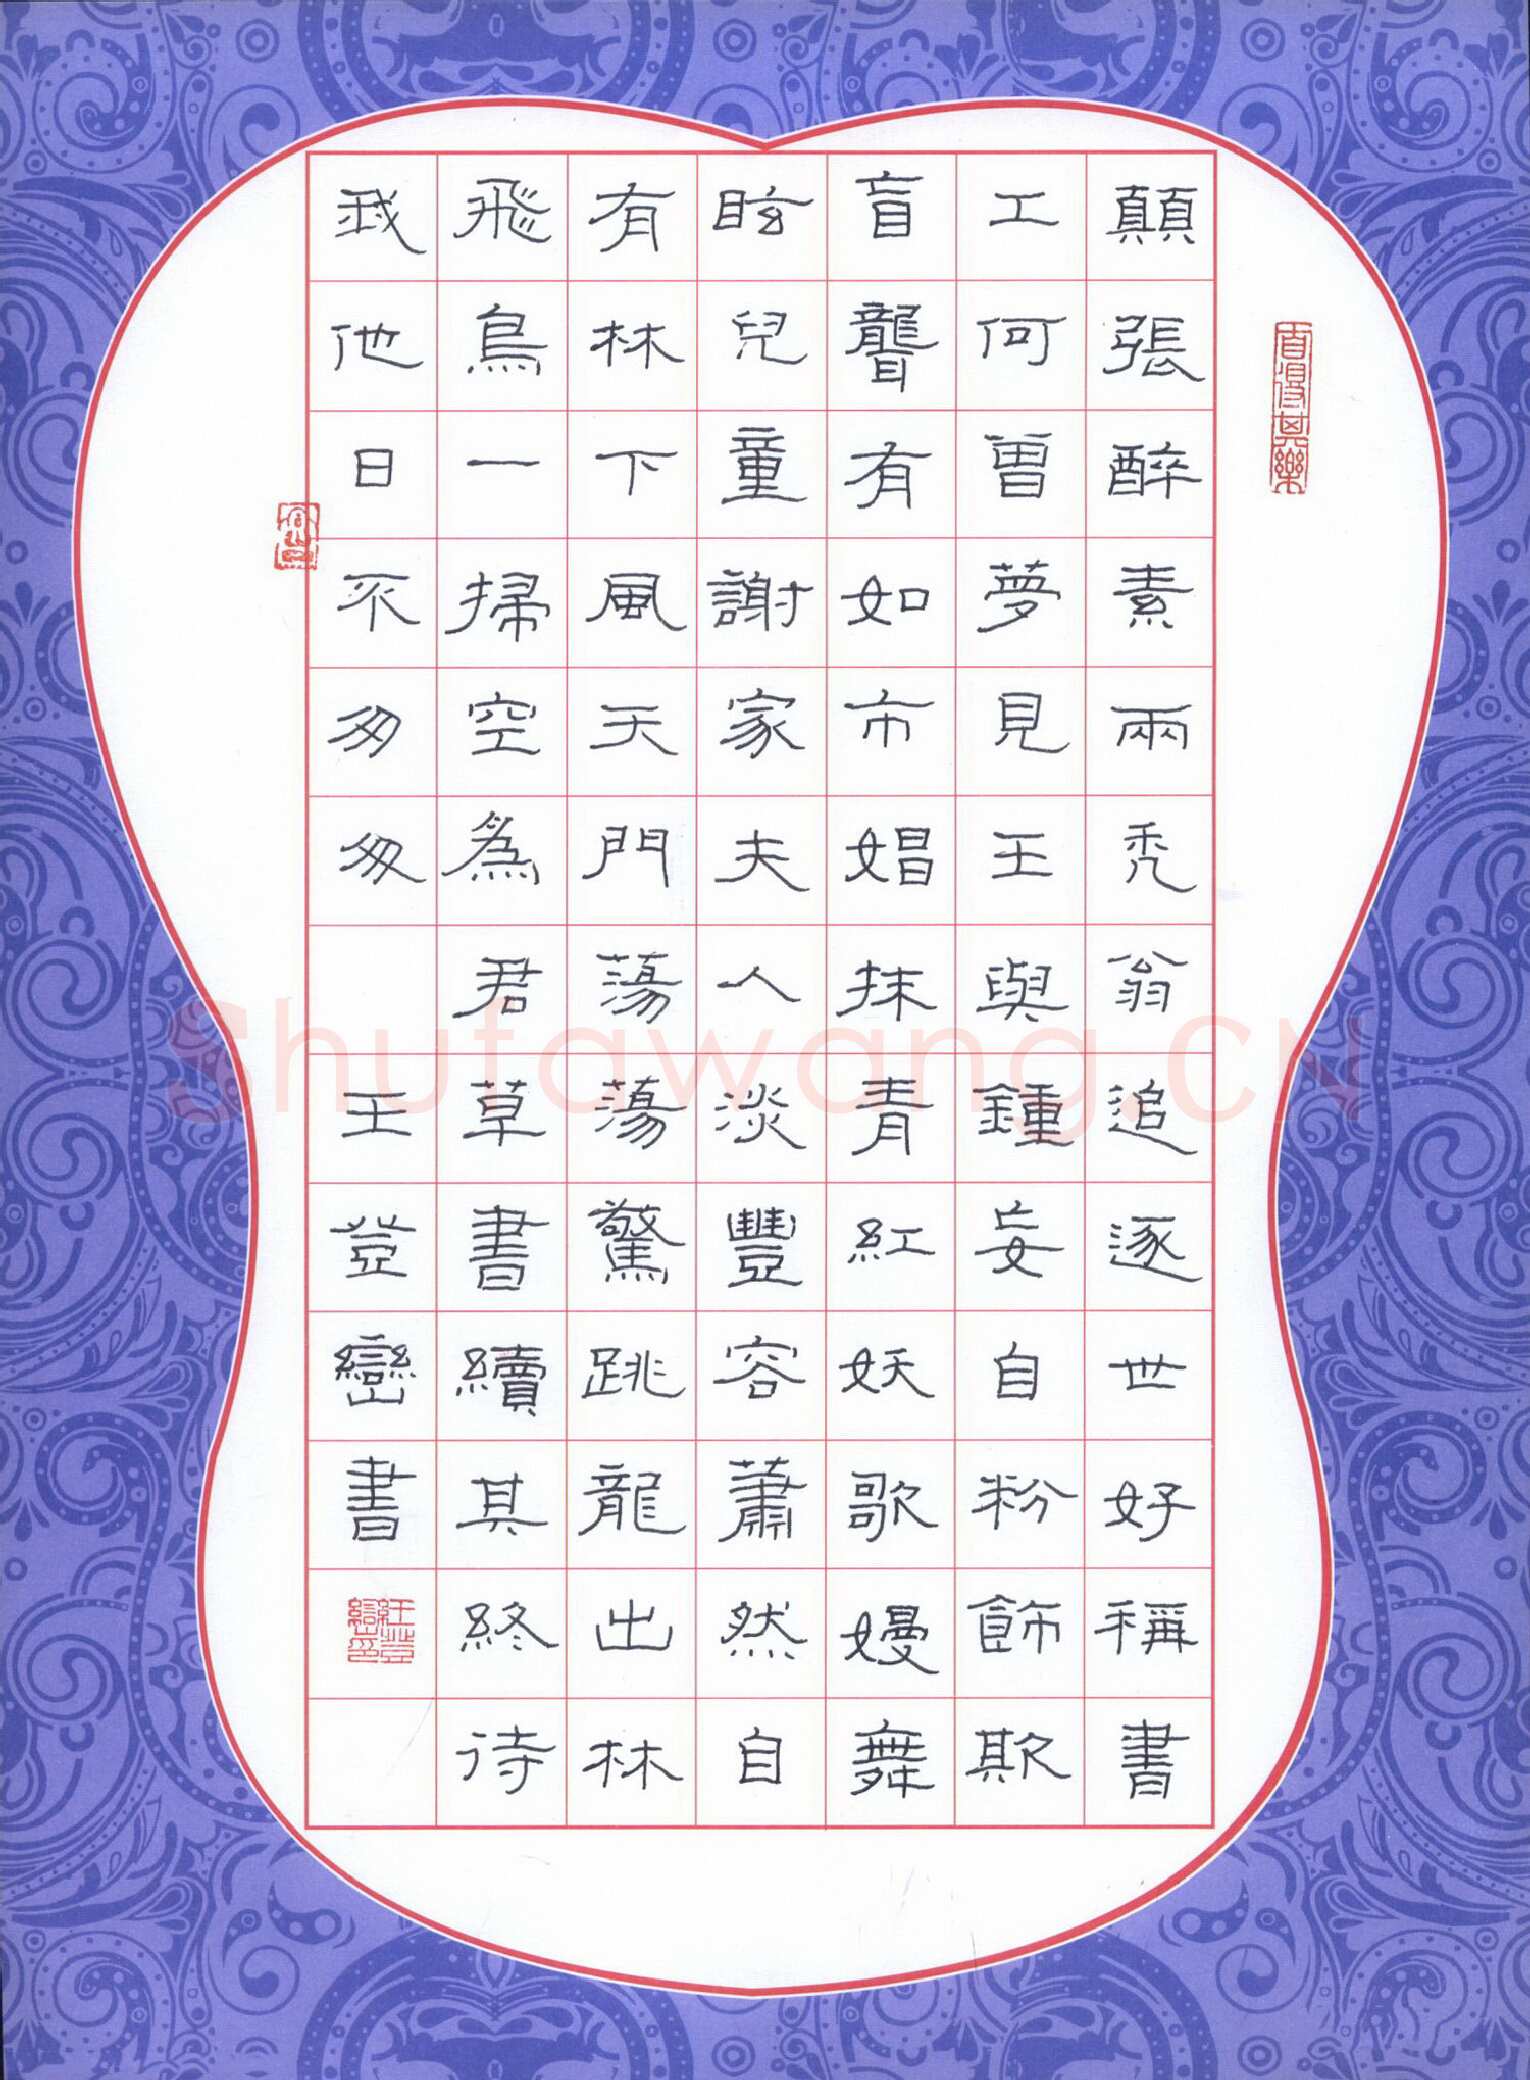 顛張醉素兩禿翁追逐世好稱書
工何曽夢見王與鍾妄自粉飾欺
盲聾有如市娼抹青紅妖歌嫚舞
眩兒童謝家夫人淡豐容蕭然自
有林下風天門蕩蕩驚跳龍出林
飛鳥一掃空為君草書續其終待
我他日不匆匆
王登巒書
Shufawang.CN